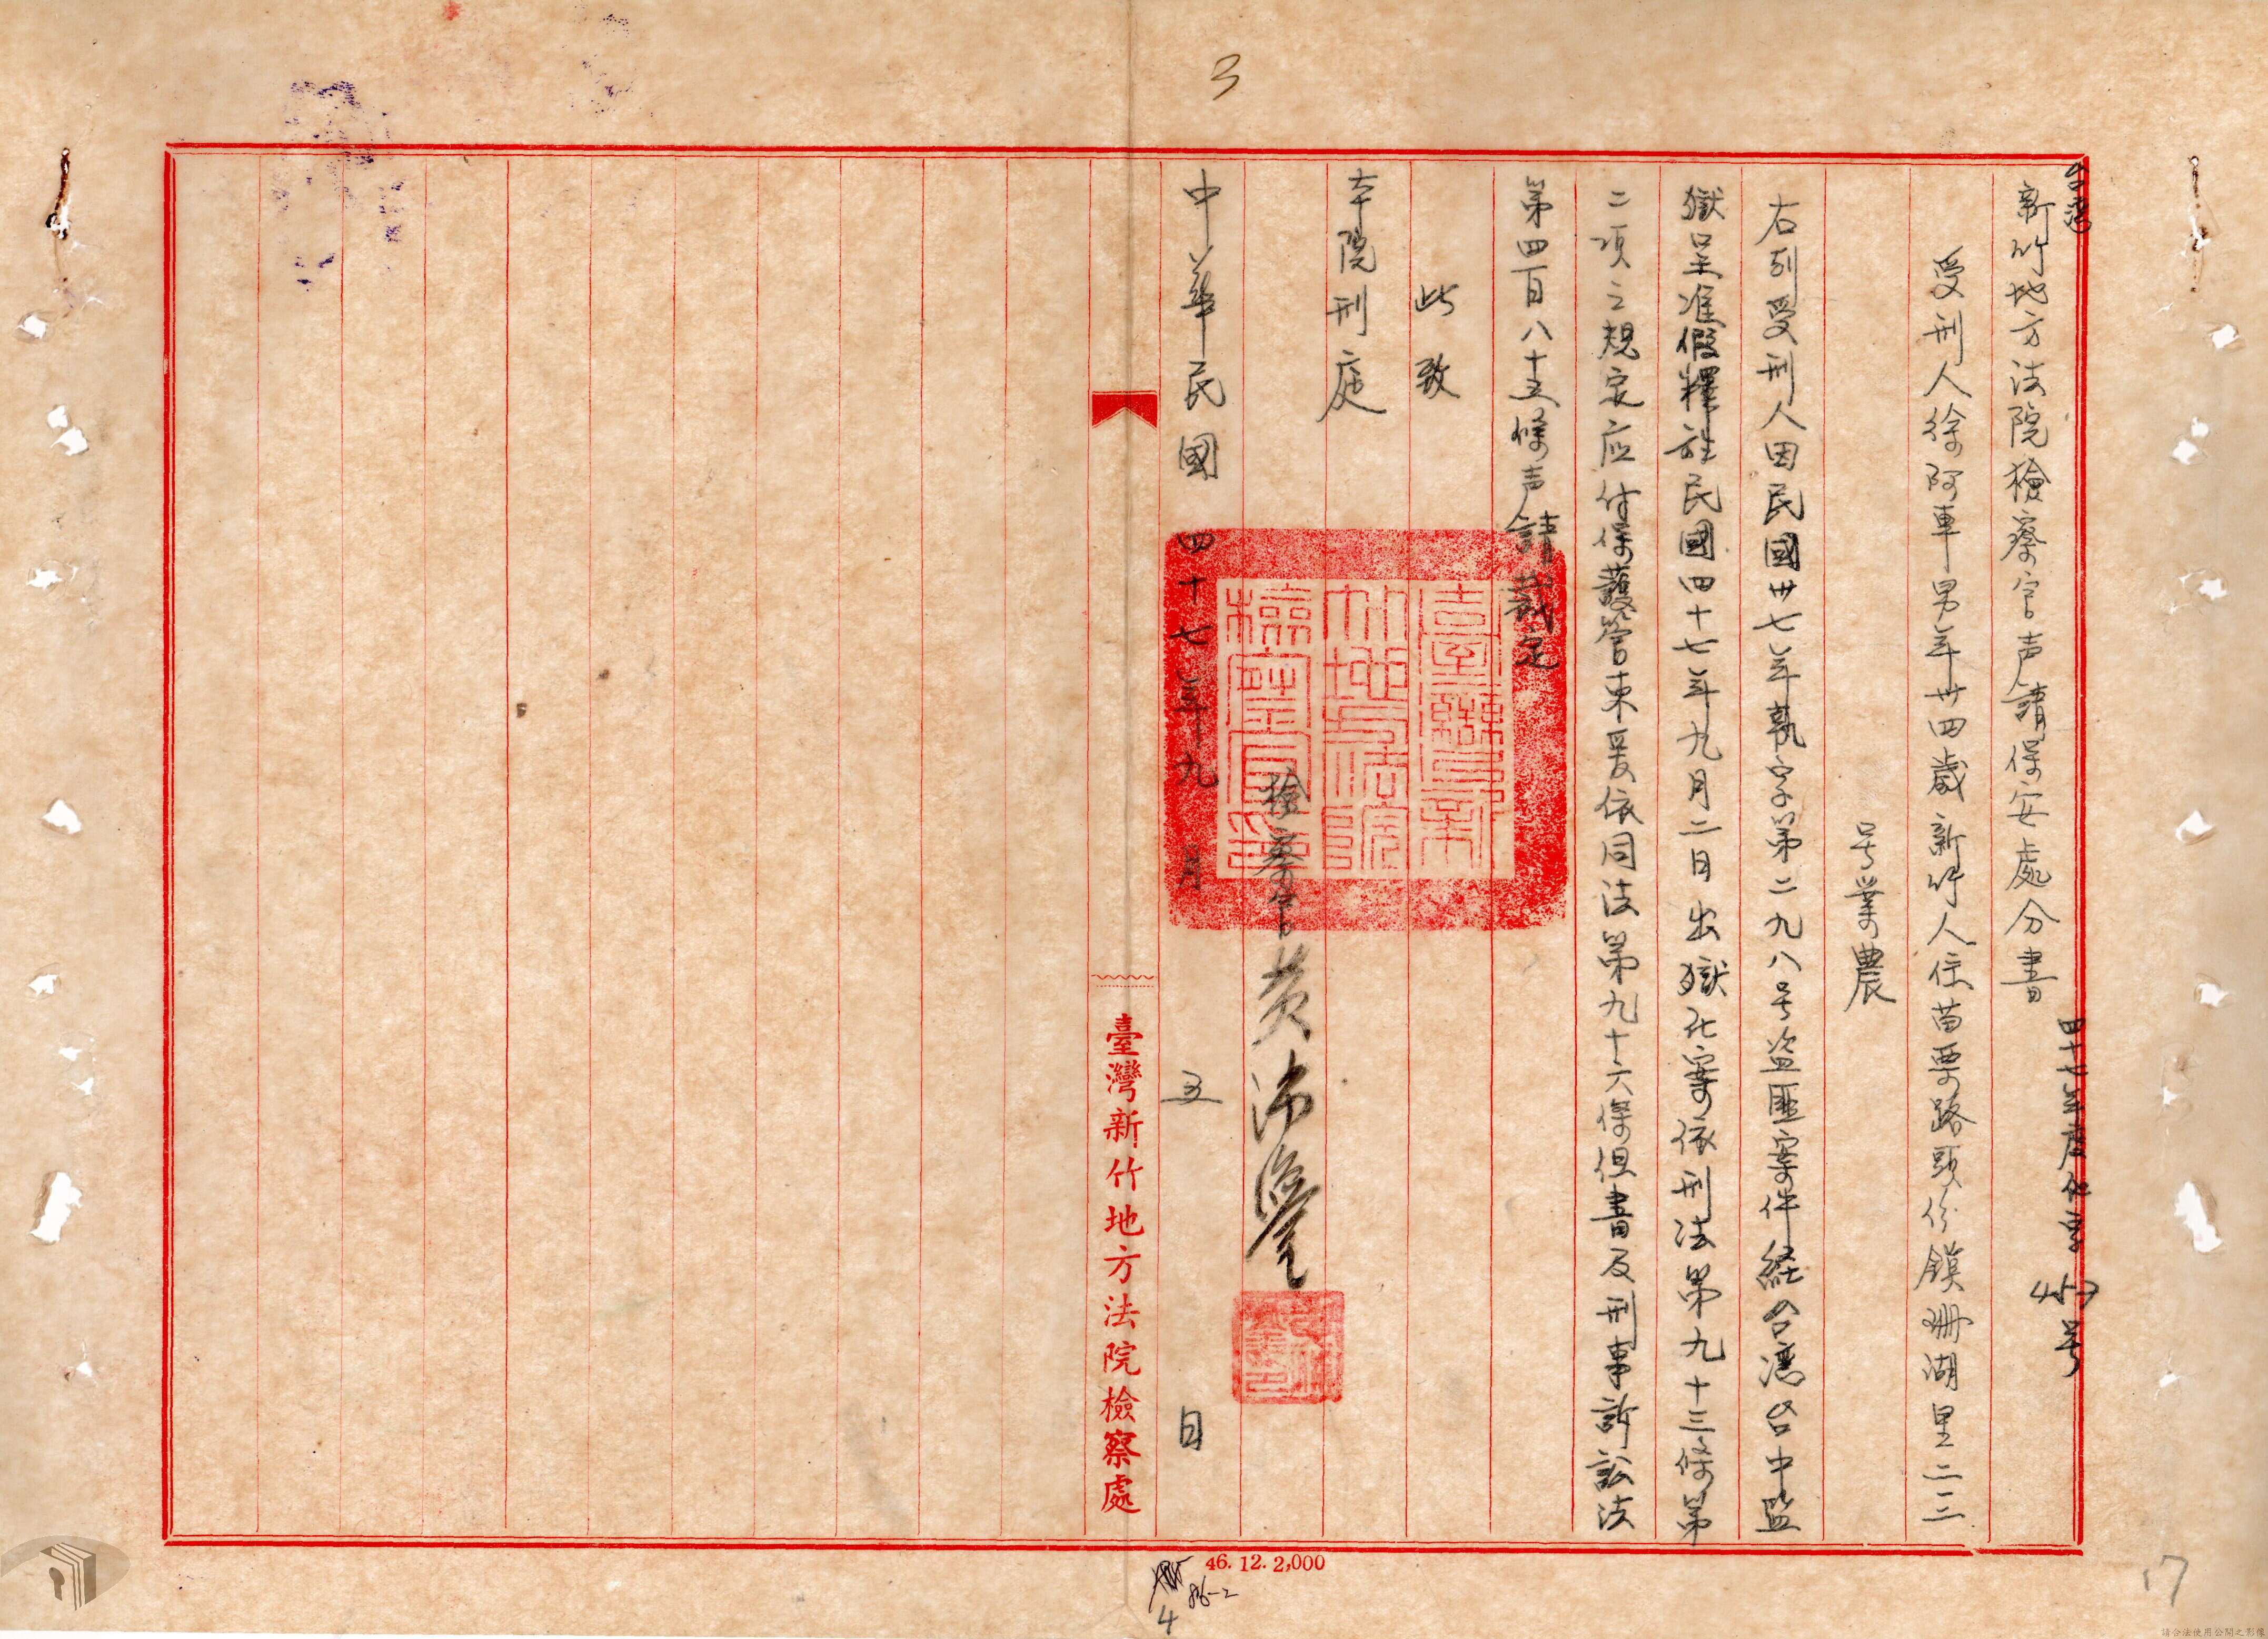 3
台灣
新竹地方法院檢察官声請保安處分書
四十七年度他字457号
受刑人徐阿車男年卅四歲新竹人住苗栗路頭份鎮珊湖里二三
号業農
右列受刑人因民國卅七年執字第二九八号盜匪案件経台灣台中監
獄呈准假釋於民國四十七年九月二日出獄在案依刑法第九十三條第
二項之規定应付保護管束爰依同法第九十六條但書及刑事訴訟法
第四百八十五條声請裁定
此致
本院刑庭
臺灣新竹地方法院檢察官印
檢察官黃
中華民國四十七年九月五日
臺灣新竹地方法院檢察處
46. 12. 2,000
86-2
4
17
請合法使用公開之影像